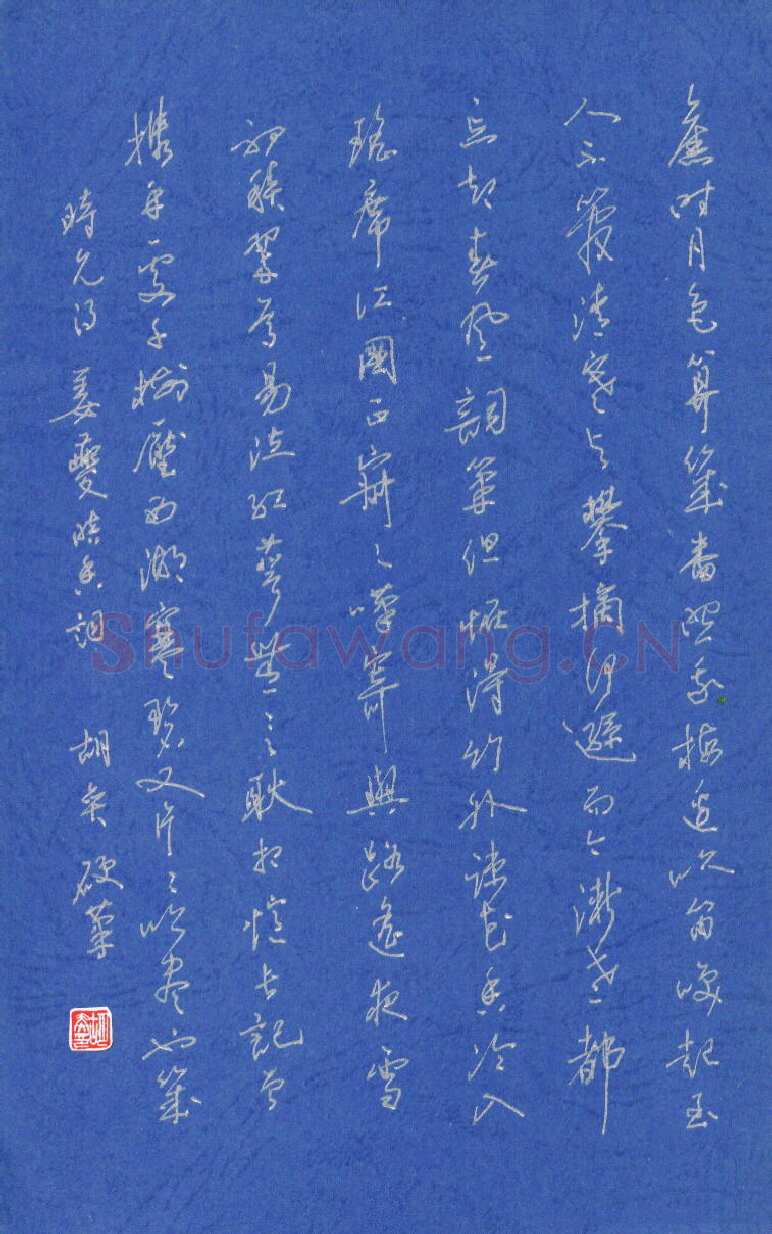 舊时月色算幾番照我梅邊吹笛喚起玉
人不管清寒与攀摘何遜而今漸老都
忘却春風詞筆但怪得竹外疎花香冷入
瑶席江國正寂〻嘆寄與路遙夜雪
初積翠尊易泣红萼無言耿相憶长記曾
携手處千樹壓西湖寒碧又片〻吹盡也幾
時見得 姜夔暗香詞 胡 硬筆
Shufawang.CN